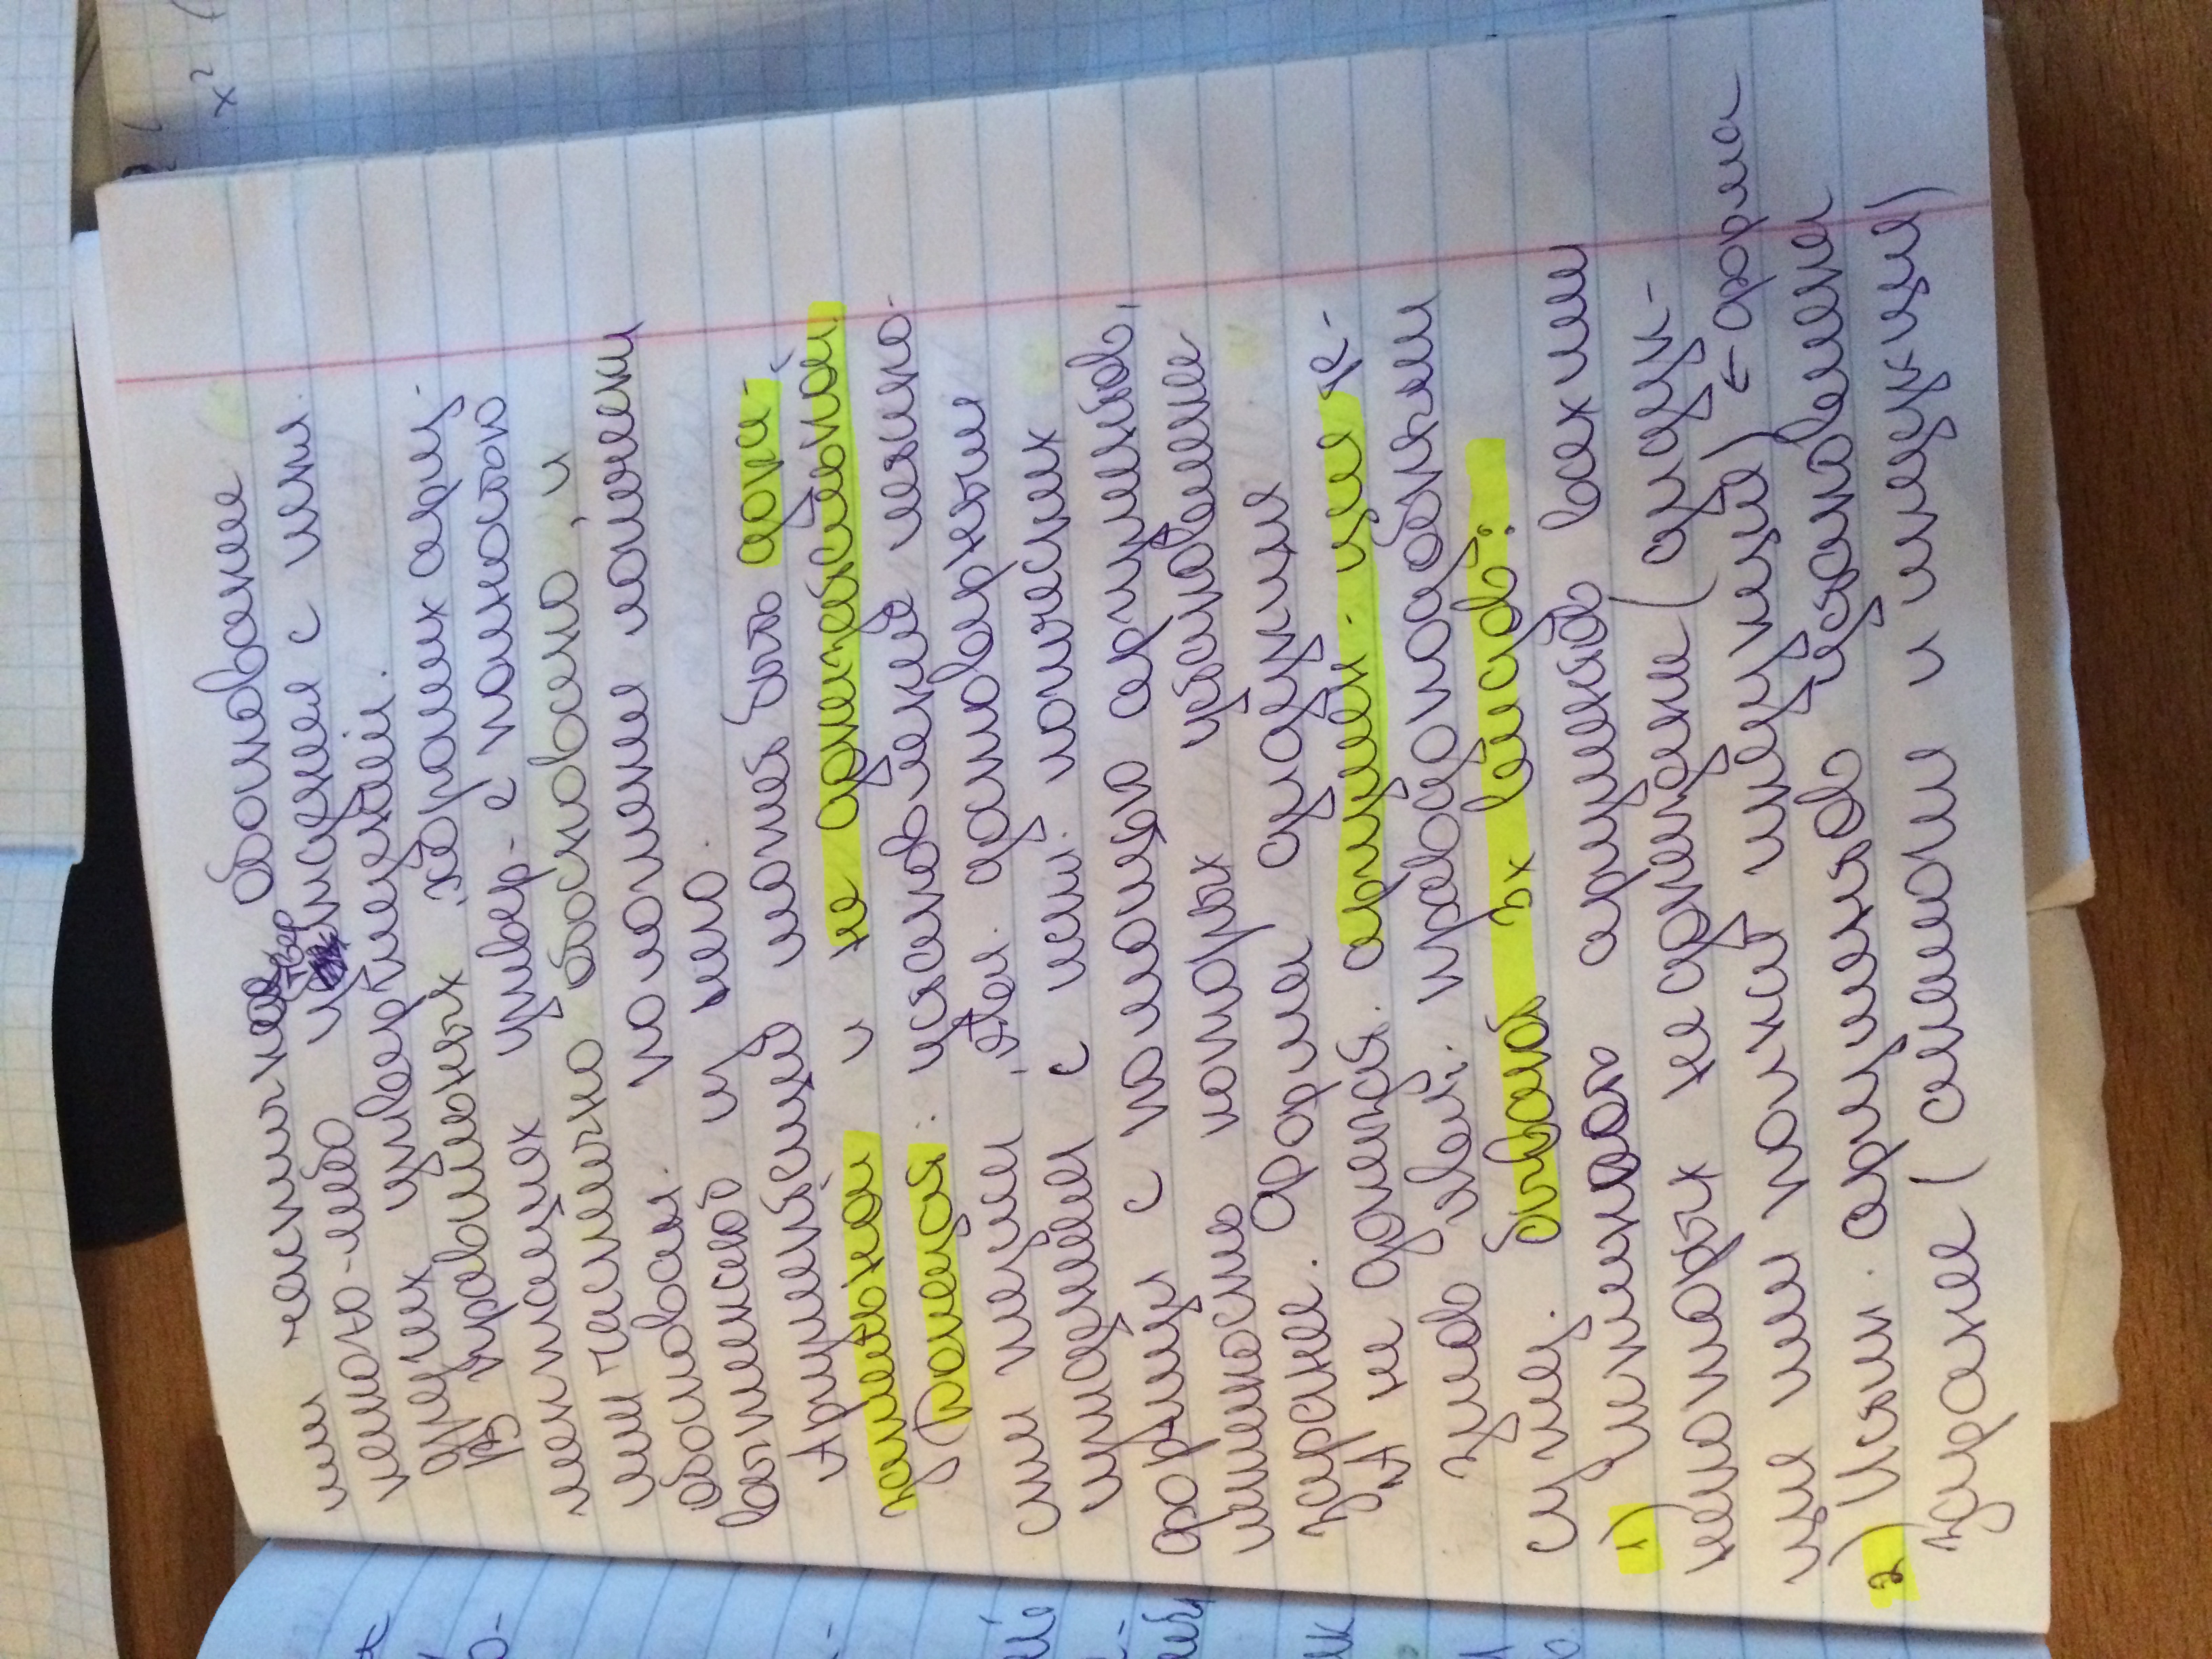 или частичное обоснование
какого-либо утверждения с испл.
других утверждений.
В правильных, хороших аргу-
ментациях утвер-е полностью
или частично обосновано, и
обоснован. положения логически
вытекают из него.
Аргументация может быть дока-
зательной и не доказательной.
Доказат: установление истино-
сти тезиса, явл. достоверным
суждением с испл. логических
форм с помощью аргументов,
истиность которых установлена
заранее. Форма дидукция
А не доказат. аргумен-ция те-
зисов явл. правдоподобными
сужд. бывают 3х видов:
1) Истинность аргументов всех или
некоторых не доказана (дидук-
ция или полная индукция) ← форма
2) Истин. аргументов установлена
заранее (аналогия и индукция)
x²